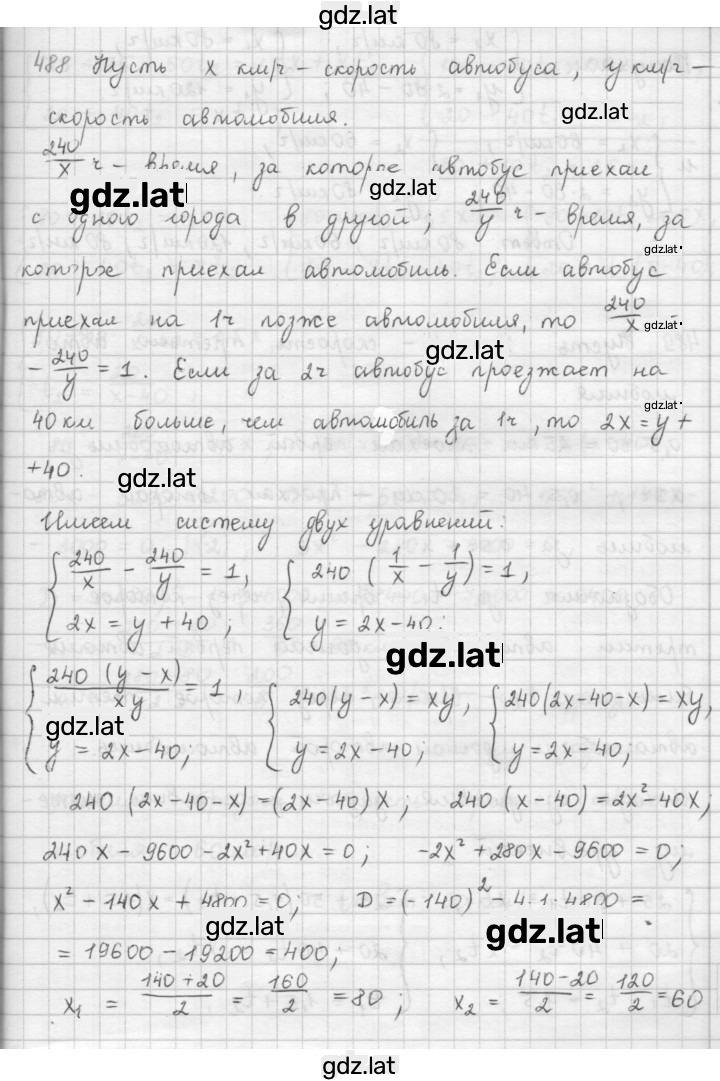 gdz.lat
488 Пусть x км/ч – скорость автобуса, y км/ч –
скорость автомобиля.
gdz.lat
240/x ч – время, за которое автобус приехал
gdz.lat
gdz.lat
с одного города в другой; 240/y ч – время, за
gdz.lat
которое приехал автомобиль. Если автобус
приехал на 1ч позже автомобиля, то 240/x –
gdz.lat
– 240/y = 1. Если за 2ч автобус проезжает на
gdz.lat
40 км больше, чем автомобиль за 1ч, то 2x = y +
gdz.lat
+40.
gdz.lat
Имеем систему двух уравнений:
{ 240/x – 240/y = 1, { 240 (1/x – 1/y) = 1,
2x = y + 40; y = 2x – 40;
gdz.lat
{ 240 (y – x)/xy = 1, { 240(y – x) = xy, { 240(2x–40–x) = xy,
gdz.lat
y = 2x – 40; y = 2x – 40; y = 2x – 40;
240 (2x–40–x) = (2x–40) x; 240 (x–40) = 2x² – 40x;
240x – 9600 – 2x² + 40x = 0; -2x² + 280x – 9600 = 0;
x² – 140x + 4800 = 0; D = (–140)² – 4·1·4800 =
gdz.lat
gdz.lat
= 19600 – 19200 = 400;
x₁ = (140 + 20)/2 = 160/2 = 80; x₂ = (140 – 20)/2 = 120/2 = 60
gdz.lat